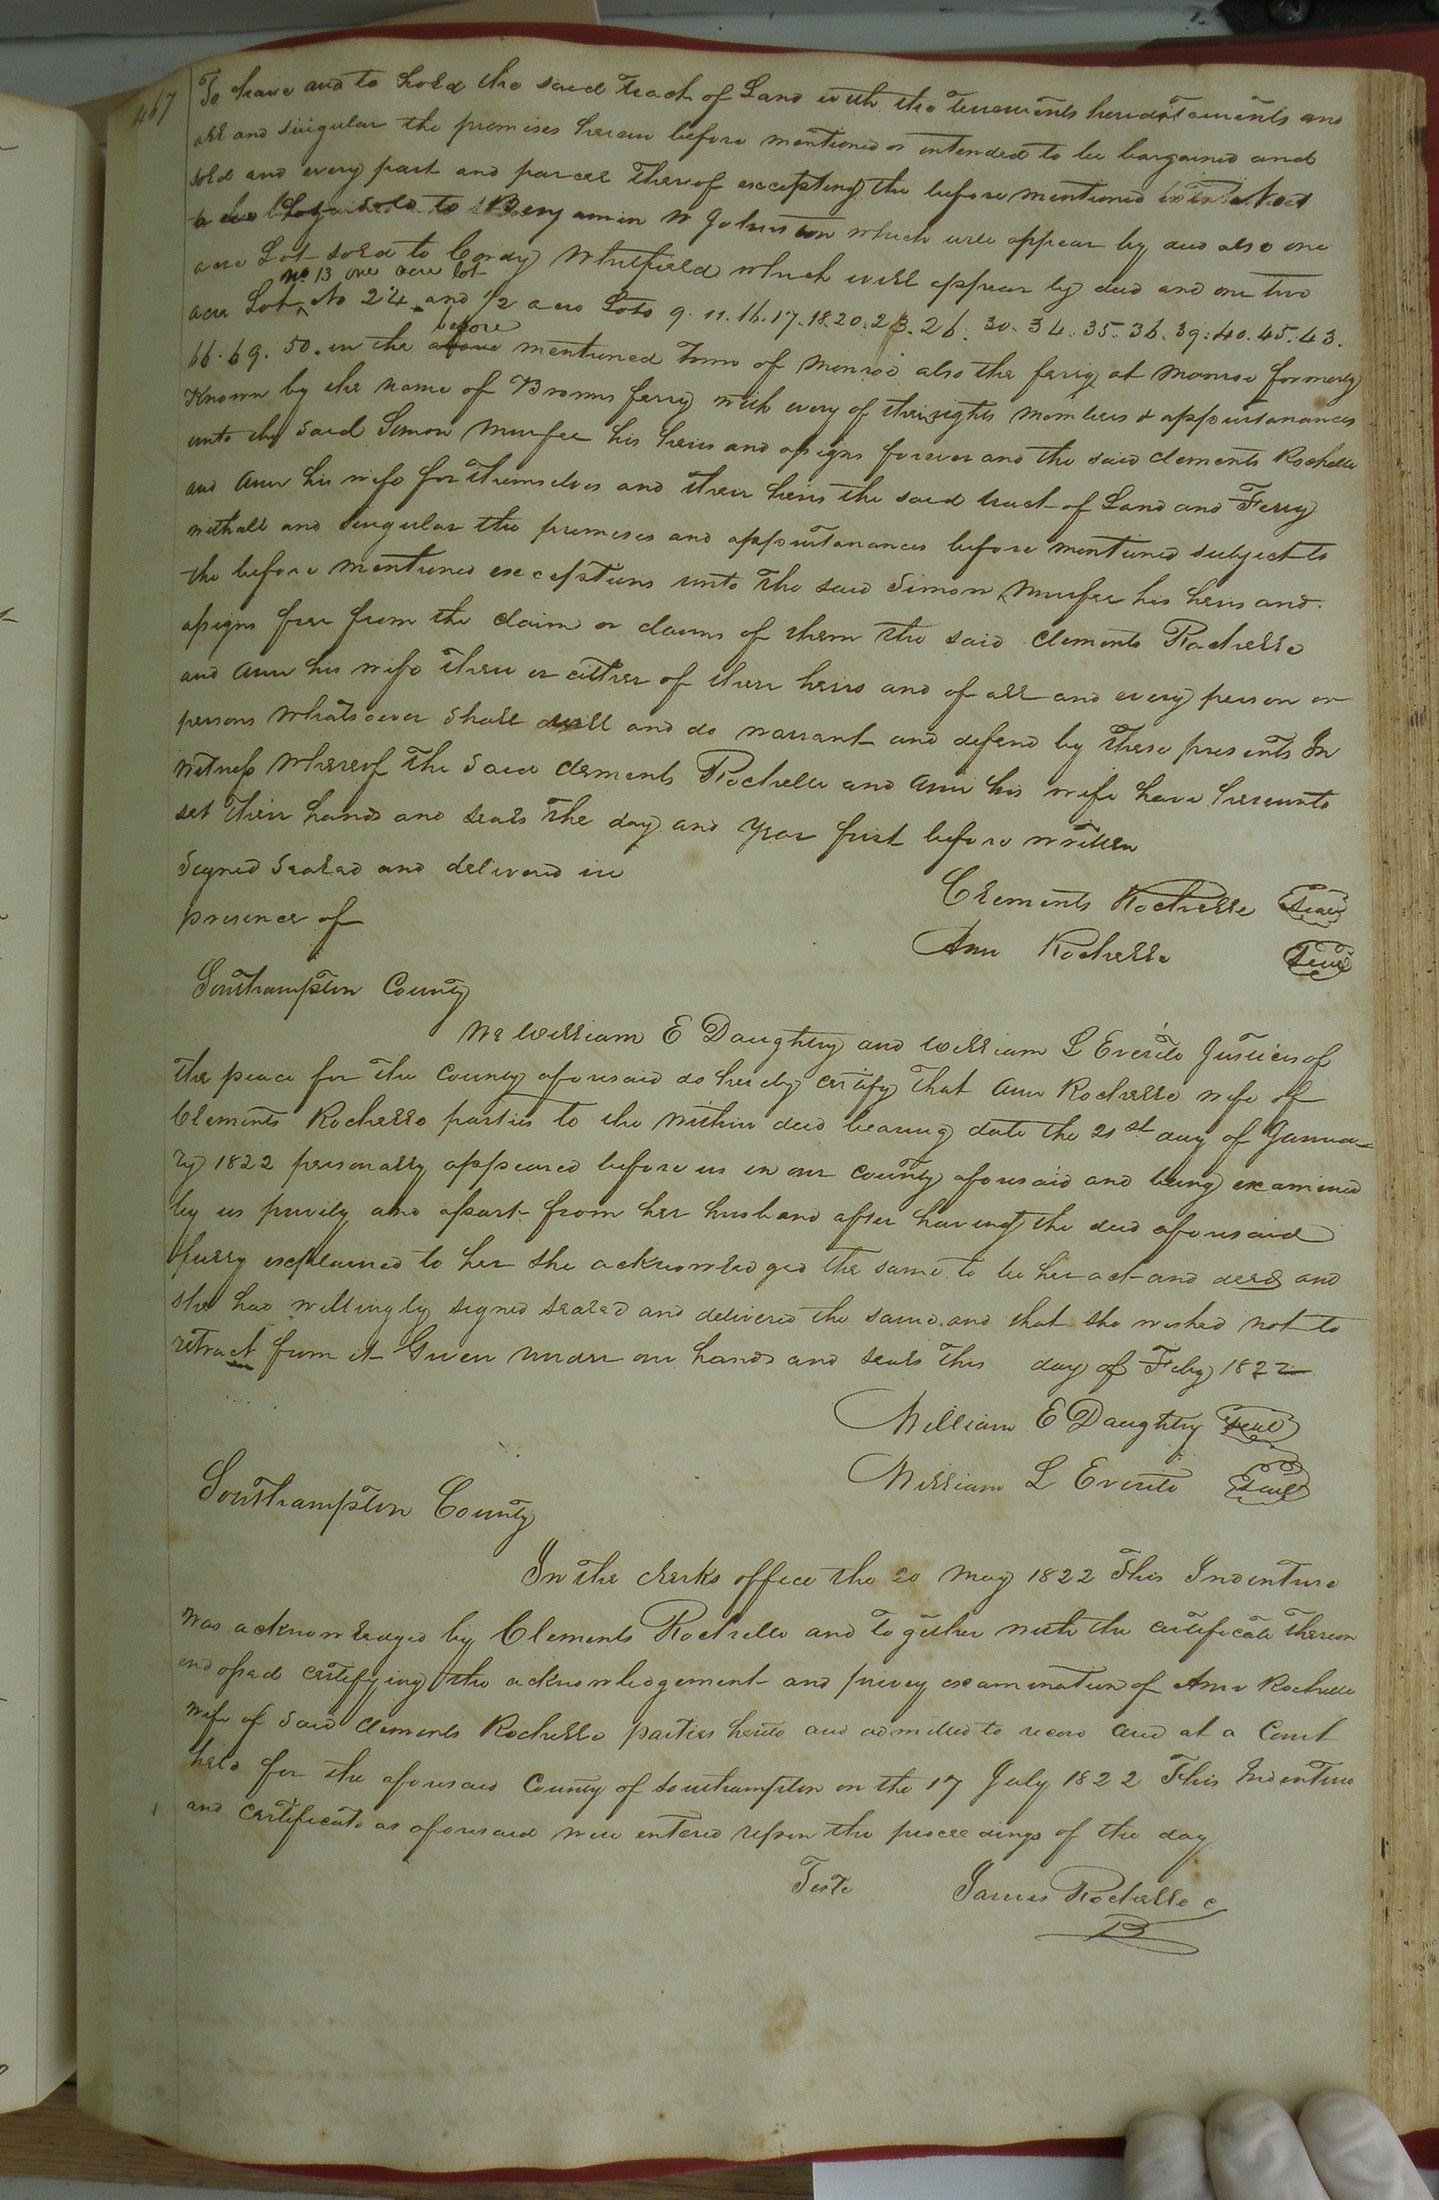 467
To have and to hold the said tract of Land with the tenements heredatements and
all and singular the premises herein before mentioned or intended to be bargained and
sold and every part and parcel thereof excepting the before mentioned
sold to Benjamin W Johnston which will appear by deed also one
acre Lot sold to Cordy Whitfield which will appear by deed and one two
no 13 one acre lot
acre Lot No 24 and 1/2 acre Lots 9. 11. 16. 17. 18. 20. 23. 26. 30. 34. 35. 36. 39. 40. 45. 43.
before
66. 69. 50. in the above mentioned Town of Monroe also the ferry at Monroe formerly
Known by the name of Browns ferry with every of their rights members & appurtanances
unto the said Simon Murfee his heirs and assigns forever and the said Clements Rochelle
and Ann his wife for themselves and their heirs the said tract of Land and Ferry
with all and singular the premises and appurtanances before mentioned subject to
the before mentioned exceptions unto the said Simon Murfee his heirs and
assigns free from the claim or claims of them the said Clements Rochelle
and Ann his wife their or either of their heirs and of all and every person or
persons whatsoever shall will and do warrant and defend by these presents In
witness whereof the said Clements Rochelle and Ann his wife have hereunto
set their hands and seals the day and year first before written
Signed Sealed and delivered in
presence of
Clements Rochelle Seal
Ann Rochelle Seal
Southampton County
We William E Daughtry and William L Everitt Justices of
the peace for the County aforesaid do hereby certify that Ann Rochelle wife of
Clements Rochelle parties to the within deed bearing date the 21st day of Janua-
ry 1822 personally appeared before us in our County aforesaid and being examined
by us privily and apart from her husband after having the deed aforesaid
fully explained to her she acknowledged the same to be her act and deed and
she had willingly signed sealed and delivered the same and that she wished not to
retract from it Given under our hands and seals this day of Feby 1822
William E Daughtry Seal
William L Everitt Seal
Southampton County
In the clerks office the 20 May 1822 This Indenture
was acknowledged by Clements Rochelle and together with the certificate thereon
endorsed certifying the acknowledgement and privey examination of Ann Rochelle
wife of Said Clements Rochelle parties hereto and admitted to record And at a Court
held for the aforesaid County of Southampton on the 17 July 1822 This Indenture
and certificate as aforesaid were entered upon the proceedings of the day
Teste James Rochelle C